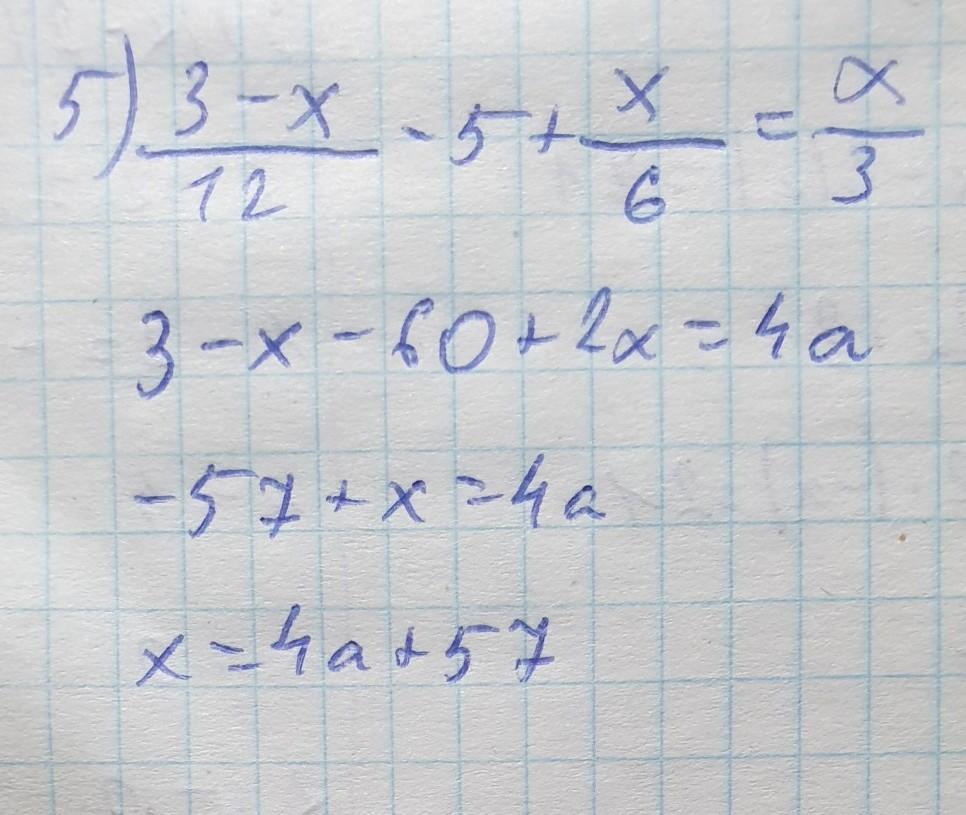 5) (3-x)/12 - 5 + x/6 = α/3
3-x-60+2x=4a
-57+x=4a
x=4a+57